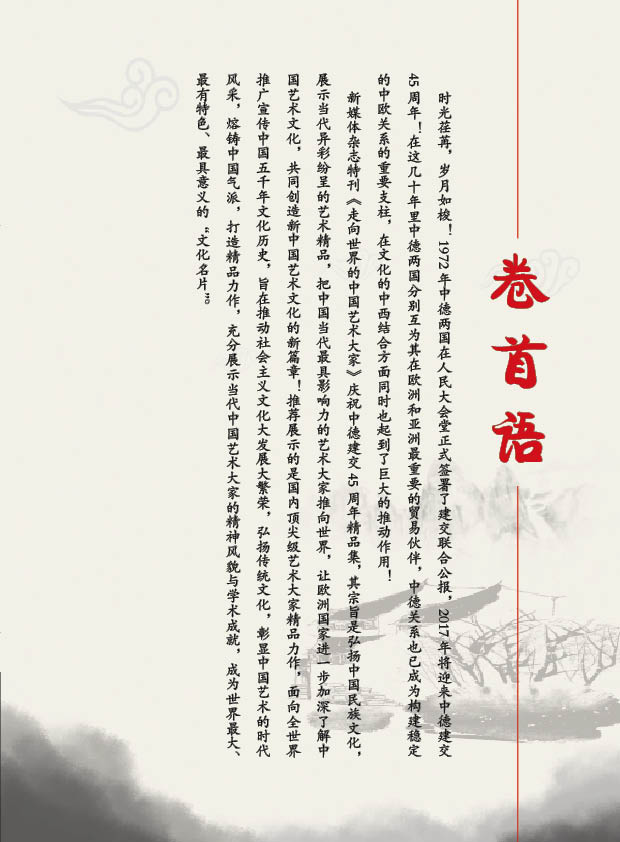 卷首语
时光荏苒，岁月如梭！1972年中德两国在人民大会堂正式签署了建交联合公报，2017年将迎来中德建交
45周年！在这几十年里中德两国分别互为其在欧洲和亚洲最重要的贸易伙伴，中德关系也已成为构建稳定
的中欧关系的重要支柱，在文化的中西结合方面同时也起到了巨大的推动作用！
新媒体杂志特刊《走向世界的中国艺术大家》庆祝中德建交45周年精品集，其宗旨是弘扬中国民族文化，
展示当代异彩纷呈的艺术精品，把中国当代最具影响力的艺术大家推向世界，让欧洲国家进一步加深了解中
国艺术文化，共同创造新中国艺术文化的新篇章！推荐展示的是国内顶尖级艺术大家精品力作，面向全世界
推广宣传中国五千年文化历史，旨在推动社会主义文化大发展大繁荣，弘扬传统文化，彰显中国艺术的时代
风采，熔铸中国气派，打造精品力作，充分展示当代中国艺术大家的精神风貌与学术成就，成为世界最大、
最有特色、最具意义的“文化名片”。